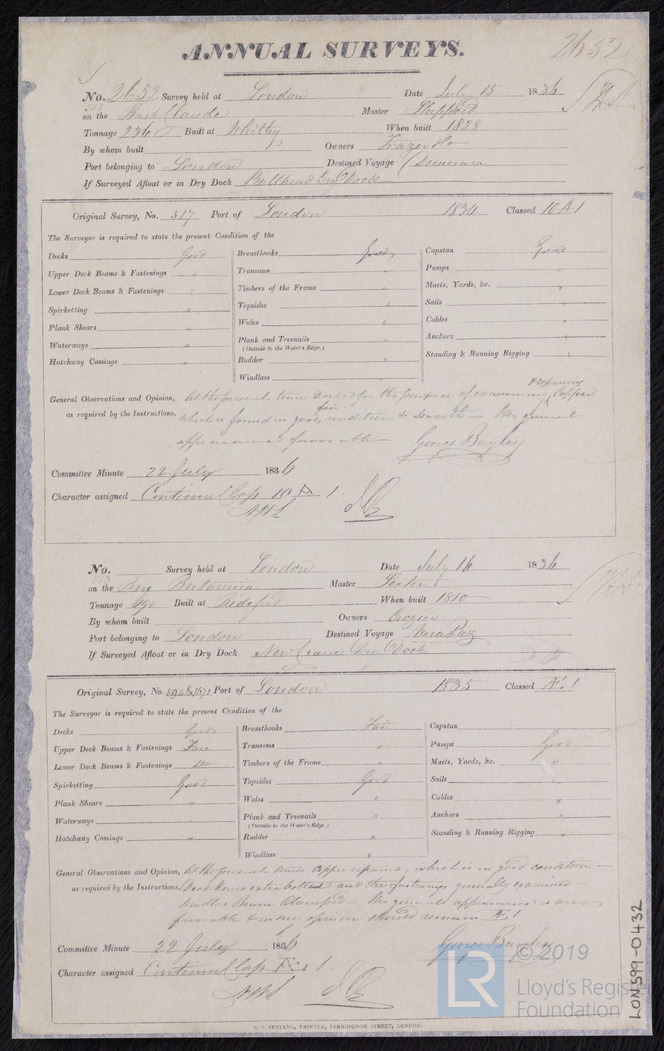 ANNUAL SURVEYS.
2652
No. 2652 Survey held at London Date July 15 1836
on the Bark Claude Master Sheppard
Tonnage 236 Built at Whitby When built 1828
By whom built Owners
Port belonging to London Destined Voyage Demerara
If Surveyed Afloat or in Dry Dock Dry Dock
Original Survey, No. 517 Port of London 1834 Classed 10 A 1
The Surveyor is required to state the present Condition of the
Decks Good
Upper Deck Beams & Fastenings "
Lower Deck Beams & Fastenings "
Spirketting "
Plank Shears "
Waterways "
Hatchway Comings "
Breasthooks Good
Transoms "
Timbers of the Frame "
Topsides "
Wales "
Plank and Treenails "
(Outside to the Water's Edge.)
Rudder "
Windlass "
Capstan Good
Pumps "
Masts, Yards, &c. "
Sails "
Cables "
Anchors "
Standing & Running Rigging "
General Observations and Opinion, At the present time Docked for the purpose of examining & repairing Copper
as required by the Instructions, which is found in fair condition & smooth – Her general
appearance is favorable –
George Bayley
Committee Minute 22 July 1836
Character assigned Continued Cop 10 A 1
No. Survey held at London Date July 14 1836
on the Brig Britannia Master
Tonnage Built at Bideford When built 1810
By whom built Owners
Port belonging to London Destined Voyage Vera Cruz
If Surveyed Afloat or in Dry Dock New Crane Dry Dock
Original Survey, No. Port of London 1835 Classed Æ 1
The Surveyor is required to state the present Condition of the
Decks Good
Upper Deck Beams & Fastenings Fair
Lower Deck Beams & Fastenings do
Spirketting Good
Plank Shears "
Waterways "
Hatchway Comings "
Breasthooks Fair
Transoms "
Timbers of the Frame "
Topsides Good
Wales "
Plank and Treenails "
(Outside to the Water's Edge)
Rudder "
Windlass "
Capstan
Pumps Good
Masts, Yards, &c. "
Sails "
Cables "
Anchors "
Standing & Running Rigging "
General Observations and Opinion, At the present time Copper repaired, which is in good condition –
as required by the Instructions, Deck knees extra bolted and the fastenings generally examined
Beam Clamped – Her general appearance is
favorable & in my opinion should remain Æ 1
George Bayley
Committee Minute 22 July 1836
Character assigned Continued Cop Æ 1
PRINTER, FARRINGDON STREET, LONDON.
LON599-0432
© 2019
LR
Lloyd's Register
Foundation